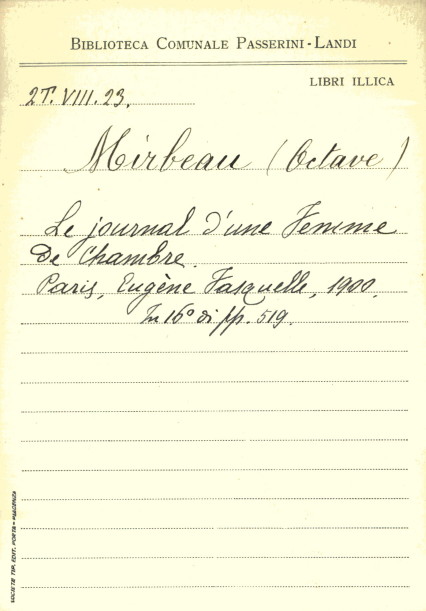 BIBLIOTECA COMUNALE PASSERINI-LANDI
LIBRI ILLICA
2T. VIII. 23.
Mirbeau (Octave)
Le journal d'une Femme
De Chambre.
Paris, Eugène Fasquelle, 1900.
In 16° di pp. 519.
SOCIETÀ TIP. EDIT. PORTA - PIACENZA